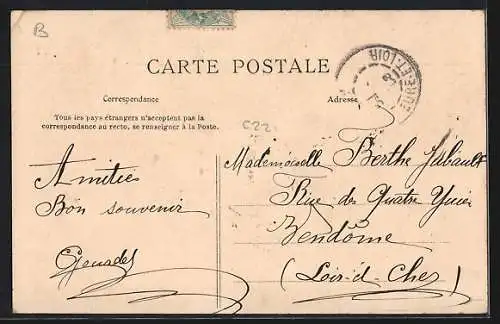 B
CARTE POSTALE
Correspondance
Adresse
Tous les pays étrangers n'acceptent pas la
correspondance au recto, se renseigner à la Poste.
C22
ET-LOIR
Mademoiselle Berthe
Amitiés
Rue des Quatre
Bon souvenir
Vendôme
(Loir-&-Cher)